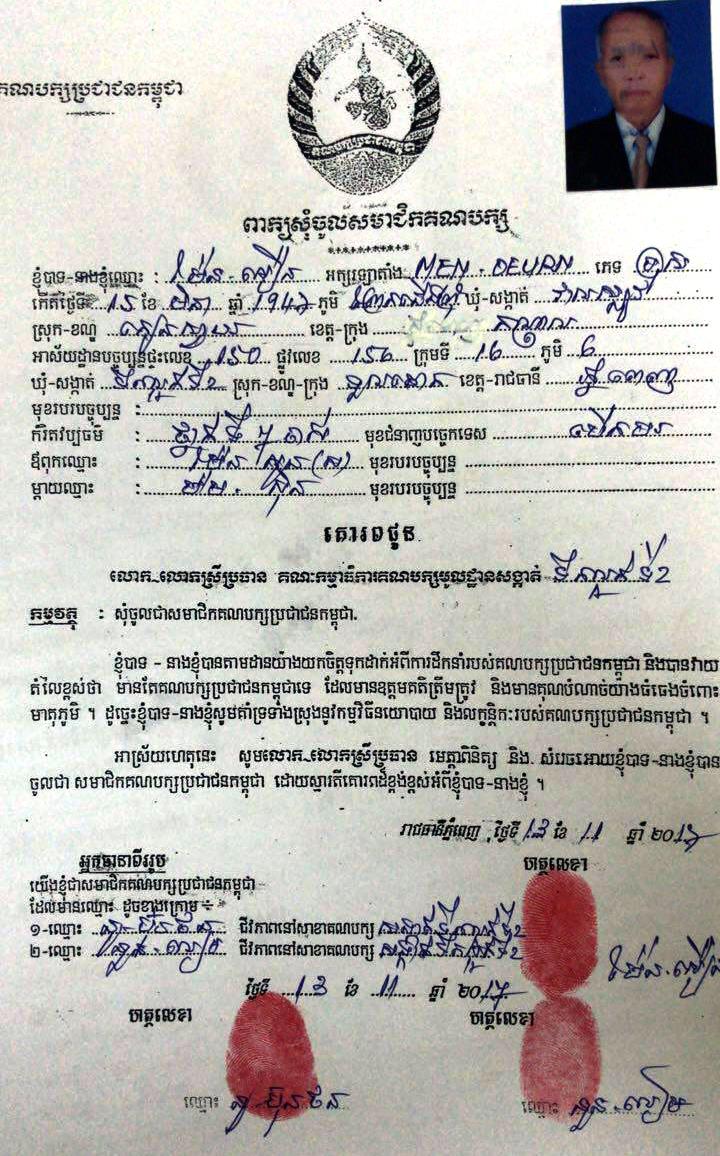 គណបក្សប្រជាជនកម្ពុជា
គណបក្សប្រជាជនកម្ពុជា
ពាក្យសុំចូលសមាជិកគណបក្ស
ខ្ញុំបាទ-នាងខ្ញុំឈ្មោះ : ម៉ែន - អឿន អក្សរឡាតាំង MEN - OEURN ភេទ ប្រុស
កើតថ្ងៃទី 15 ខែ មិនា ឆ្នាំ ភូមិ ឃុំ-សង្កាត់
ស្រុក-ខណ្ឌ ខេត្ត-ក្រុង កណ្តាល
អាស័យដ្ឋានបច្ចុប្បន្នផ្ទះលេខ 150 ផ្លូវលេខ 156 ក្រុមទី 16 ភូមិ 6
ឃុំ-សង្កាត់ ទឹកល្អក់ទី2 ស្រុក-ខណ្ឌ-ក្រុង ទួលគោក ខេត្ត-រាជធានី ភ្នំពេញ
មុខរបរបច្ចុប្បន្ន :
កំរិតវប្បធម៌ : ថ្នាក់ទី ៧ ចាស់ មុខជំនាញបច្ចេកទេស បើកបរ
ឪពុកឈ្មោះ : ម៉ែន មុខរបរបច្ចុប្បន្ន
ម្តាយឈ្មោះ : មុខរបរបច្ចុប្បន្ន
គោរពជូន
លោក-លោកស្រីប្រធាន គណៈកម្មាធិការគណបក្សមូលដ្ឋានសង្កាត់ ទឹកល្អក់ ទី2
កម្មវត្ថុ : សុំចូលជាសមាជិកគណបក្សប្រជាជនកម្ពុជា.
ខ្ញុំបាទ - នាងខ្ញុំបានតាមដានយ៉ាងយកចិត្តទុកដាក់អំពីការដឹកនាំរបស់គណបក្សប្រជាជនកម្ពុជា និងបានវាយ
តំលៃខ្ពស់ថា មានតែគណបក្សប្រជាជនកម្ពុជាទេ ដែលមានឧត្តមគតិត្រឹមត្រូវ និងមានគុណបំណាច់យ៉ាងធំធេងចំពោះ
មាតុភូមិ ។ ដូច្នេះខ្ញុំបាទ-នាងខ្ញុំសូមគាំទ្រទាំងស្រុងនូវកម្មវិធីនយោបាយ និងលក្ខន្តិកៈរបស់គណបក្សប្រជាជនកម្ពុជា ។
អាស្រ័យហេតុនេះ សូមលោក-លោកស្រីប្រធាន មេត្តាពិនិត្យ និង សំរេចអោយខ្ញុំបាទ-នាងខ្ញុំបាន
ចូលជា សមាជិកគណបក្សប្រជាជនកម្ពុជា ដោយស្មារតីគោរពដ៏ខ្ពង់ខ្ពស់អំពីខ្ញុំបាទ-នាងខ្ញុំ ។
រាជធានីភ្នំពេញ ថ្ងៃទី 13 ខែ 11 ឆ្នាំ 2017
អ្នកធានាទីររូប
ហត្ថលេខា
យើងខ្ញុំជាសមាជិកគណបក្សប្រជាជនកម្ពុជា
ដែលមានឈ្មោះ ដូចខាងក្រោម ÷
១-ឈ្មោះ នូ ប៊ុនថន ជីវភាពនៅសាខាគណបក្ស សង្កាត់ទឹកល្អក់ទី2
២-ឈ្មោះ នួន. ជីវភាពនៅសាខាគណបក្ស សង្កាត់ទឹកល្អក់ទី2
ម៉ែន. អឿន
ថ្ងៃទី 13 ខែ 11 ឆ្នាំ 2017
ហត្ថលេខា ហត្ថលេខា
ឈ្មោះ នូ ប៊ុនថន ឈ្មោះ នួន.